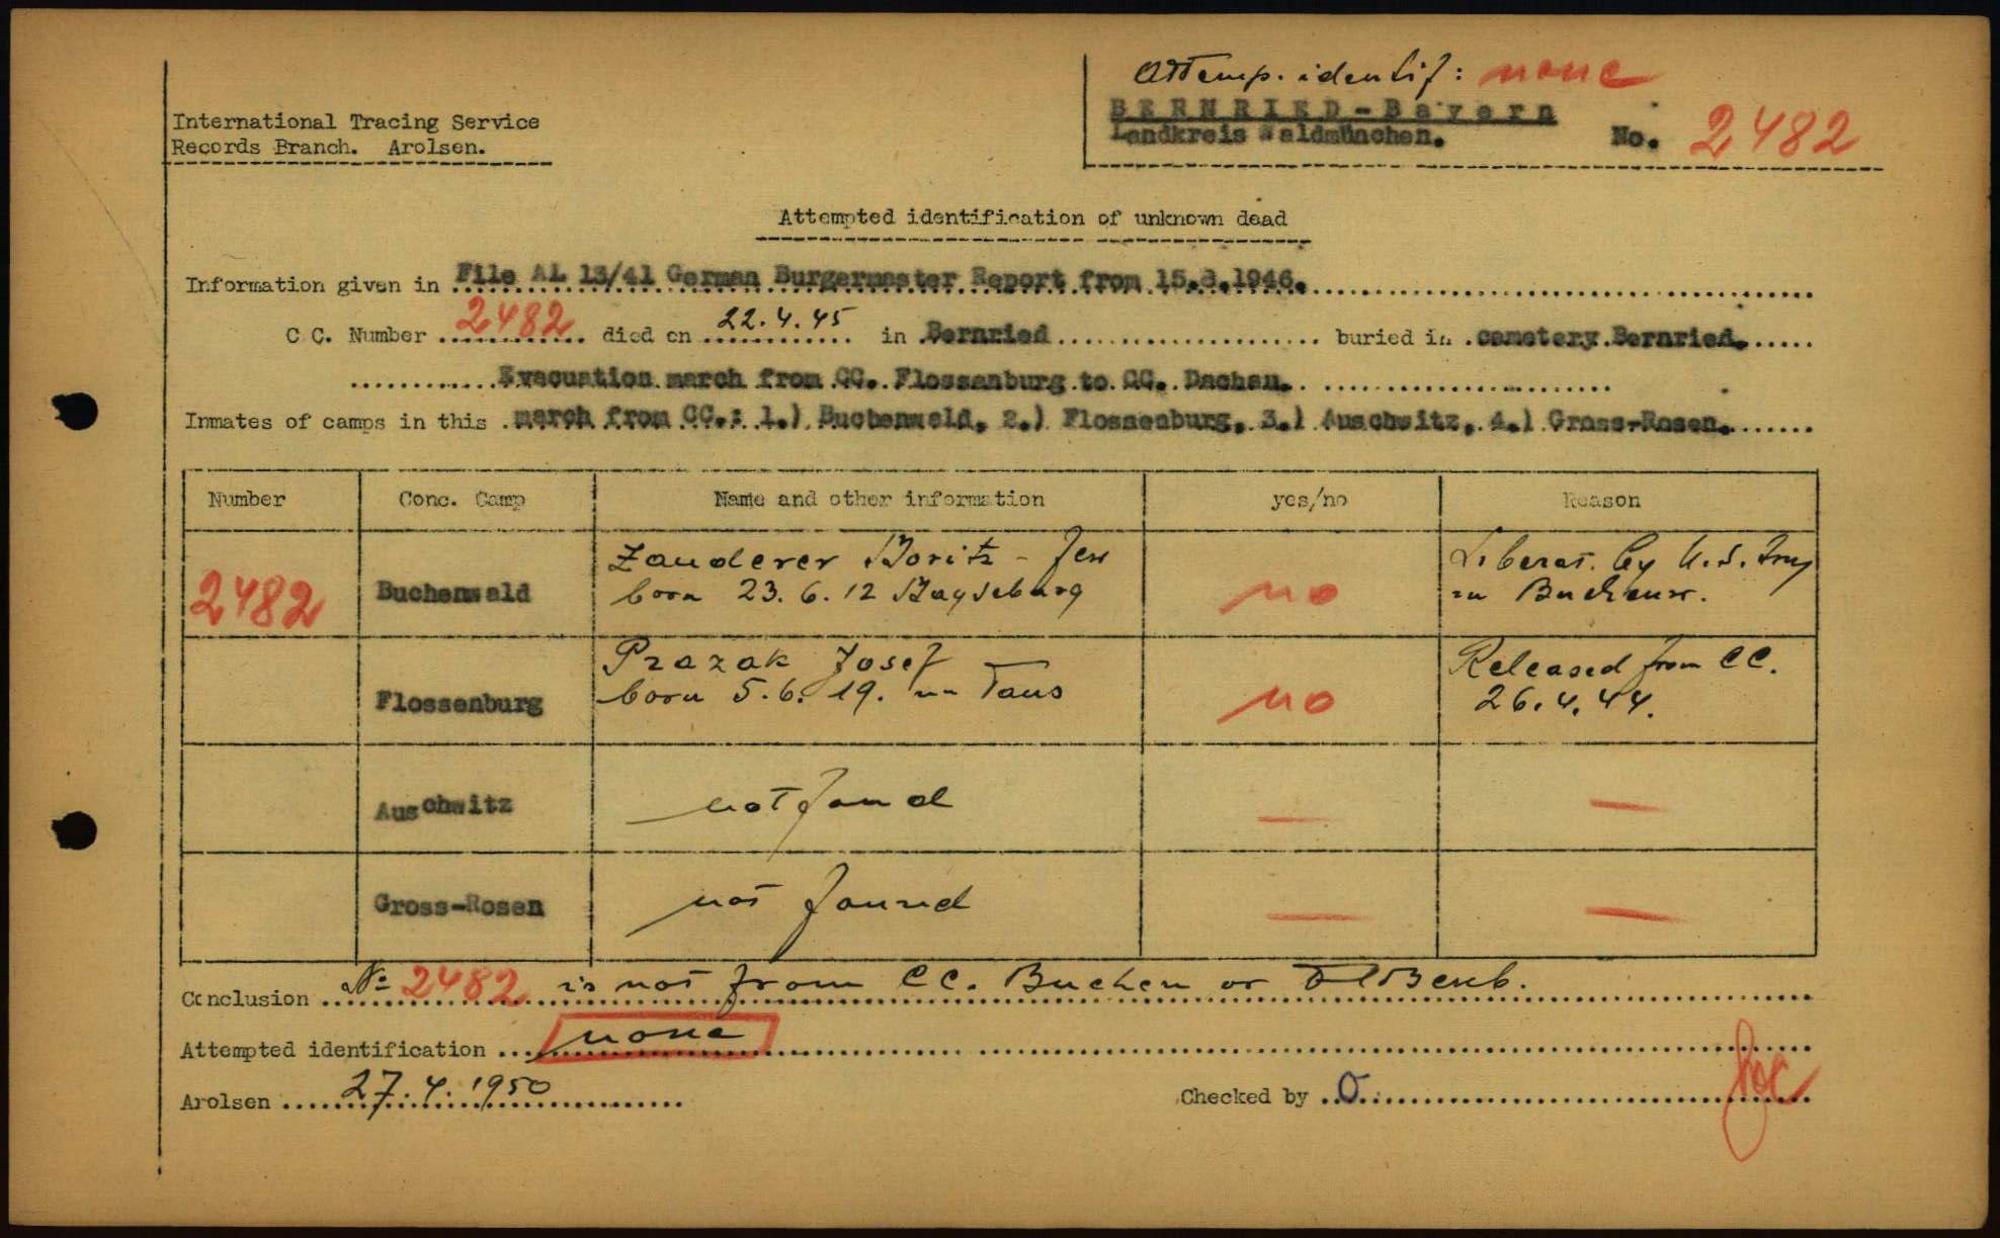 Attemp. identif: none
BERNRIED-Bayern
International Tracing Service
Landkreis Waldmünchen. No. 2482
Records Branch. Arolsen.
Attempted identification of unknown dead
Information given in File AL 13/41 German Burgermaster Report from 15.8.1946.
C C. Number 2482 died on 22.4.45 in Bernried buried in cemetery Bernried.
Evacuation march from CC. Flossenburg to CC. Dachau.
Inmates of camps in this march from CC.: 1.) Buchenwald, 2.) Flossenburg, 3.) Auschwitz, 4.) Gross-Rosen.
Number Conc. Camp Name and other information yes/no Reason
2482 Buchenwald Zauderer Moritz - Jew no Liberat. by U.S. Army
born 23.6.12 Magdeburg in Buchenw.
Flossenburg Prazak Josef no Released from CC.
born 5.6.19. in Taus 26.4.44.
Auschwitz not found — —
Gross-Rosen not found — —
Conclusion No 2482 is not from CC. Buchen or Flossenb.
Attempted identification none
Arolsen 27.4.1950 Checked by